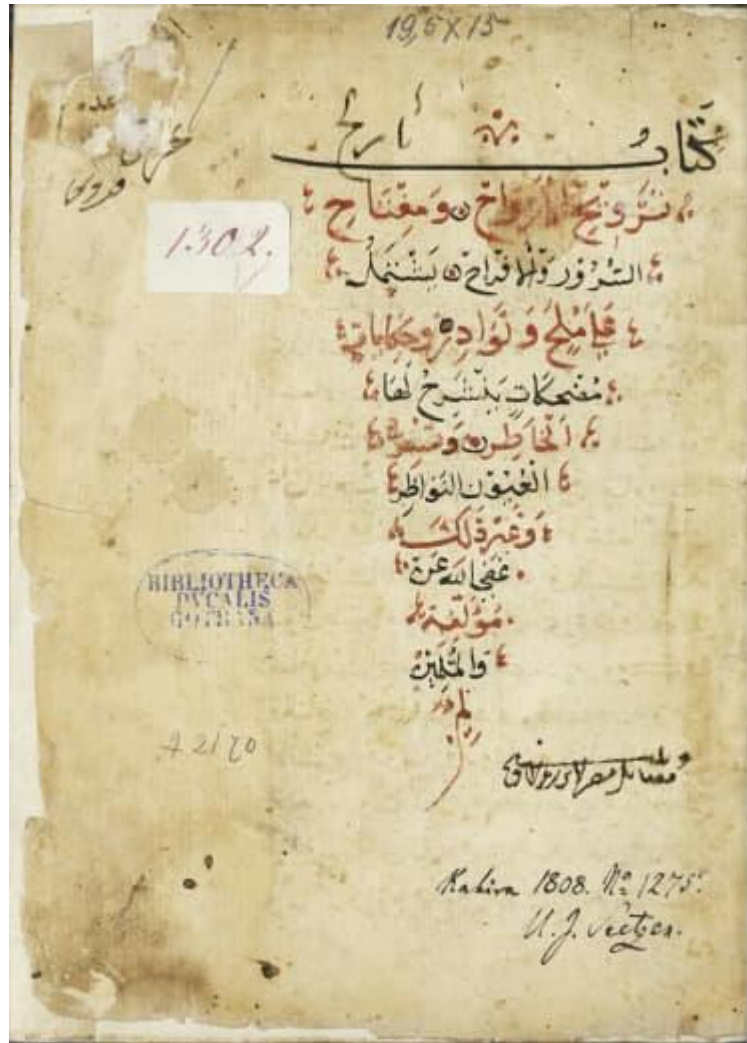 19,5 X 15
كتاب تاريخ
تَرْوِيحُ الأَرْوَاحْ وَمِفْتَاحِ
السُّرُوْر وَالأفرَاحْ يَشْتَمِلُ
عَلى مُلحَ وَنَوادِر وَحِكاياتٍ
مُضحِكَاتٍ يَنْشَرِحُ لَهَا
الخَاطِر وَتسُرُّ
الْعُيُوْن النَوَاظِر
وَغَيْر ذَلِكَ
عَفَى الله عَنْ
مُؤَلّفِهِ
وَالمُسْلِمِيْنْ
1302.
BIBLIOTHECA
DVCALIS
GOTHANA
A 2170
Kahira 1808. No 1275.
U. J. Seetzen.